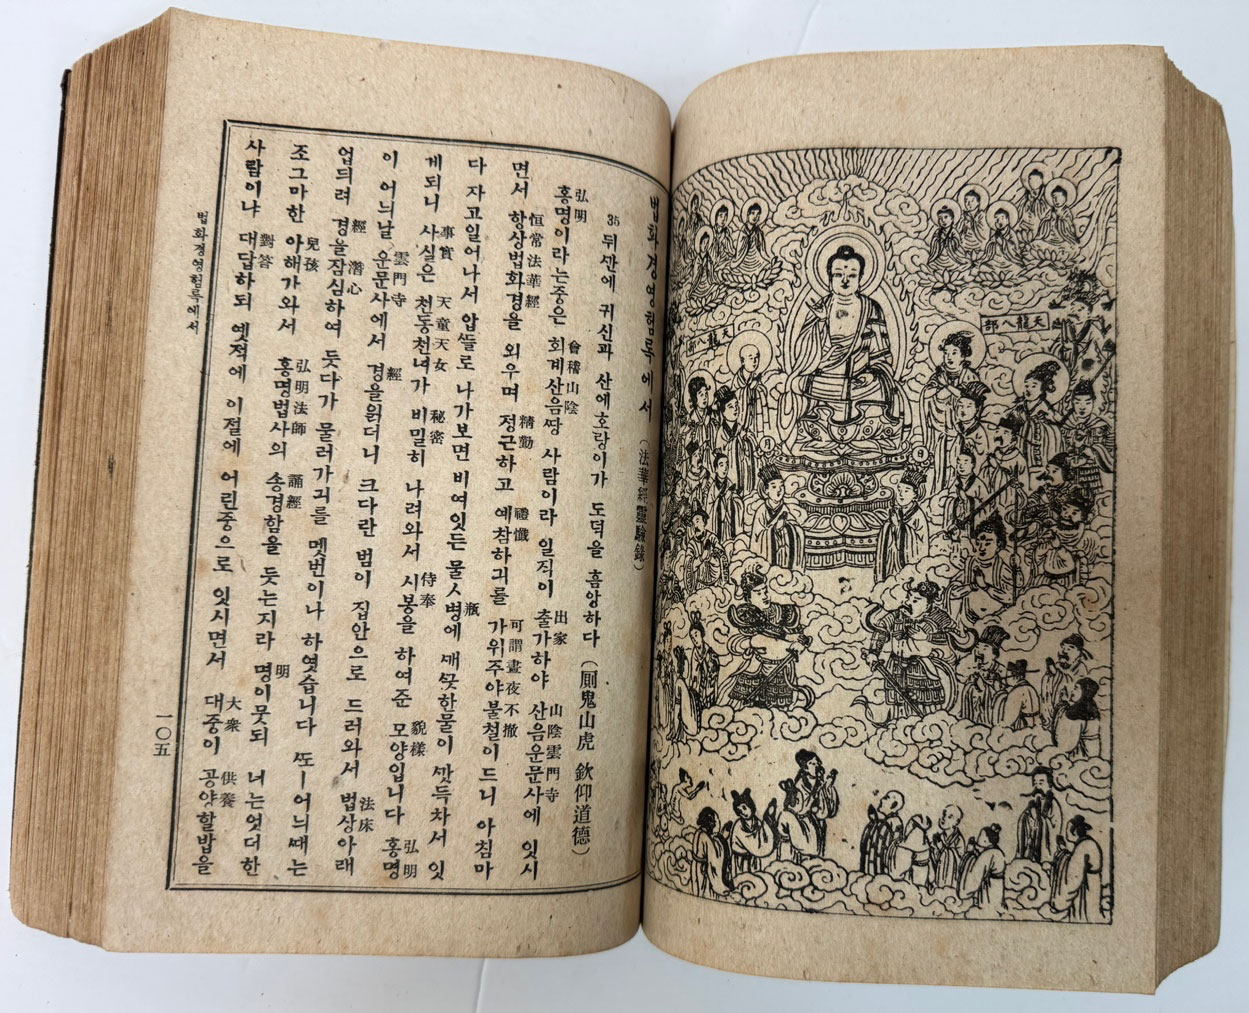 天龍八部
법화경영험록에서 (法華經靈驗錄)
35 뒤깐에 귀신과 산에호랑이가 도덕을 흠앙하다 (厠鬼山虎 欽仰道德)
弘明 會稽山陰 出家 山陰雲門寺
홍명이라는중은 회계산음땅 사람이라 일직이 출가하야 산음운문사에 잇시
恒常法華經 精勤 禮懺 可謂晝夜不撤
면서 항상법화경을 외우며 정근하고 예참하긔를 가위주야불철이 드니 아침마
瓶
다 자고일어나서 압뜰로 나가보면 비여잇든 물ㅅ병에 한물이 깟득차서 잇
事實 天童天女 秘密 侍奉 貌樣 弘明
게되니 사실은 천동천녀가 비밀히 나려와서 시봉을 하여준 모양입니다 홍명
雲門寺 經 法床
이 어늬날 운문사에서 경을읽더니 크다란 범이 집안으로 드러와서 법상아래
經 潛心
업듸려 경을잠심하여 듯다가 물러가긔를 멧번이나 하엿습니다 또ー어늬때는
兒孩 弘明法師 誦經 明
조그마한 아해가와서 홍명법사의 송경함을 듯는지라 명이뭇되 너는엇더한
對答 大衆 供養
사람이냐 대답하되 옛적에 이절에 어린중으로 잇시면서 대중이 공양할밥을
법화경영험록에서
一〇五